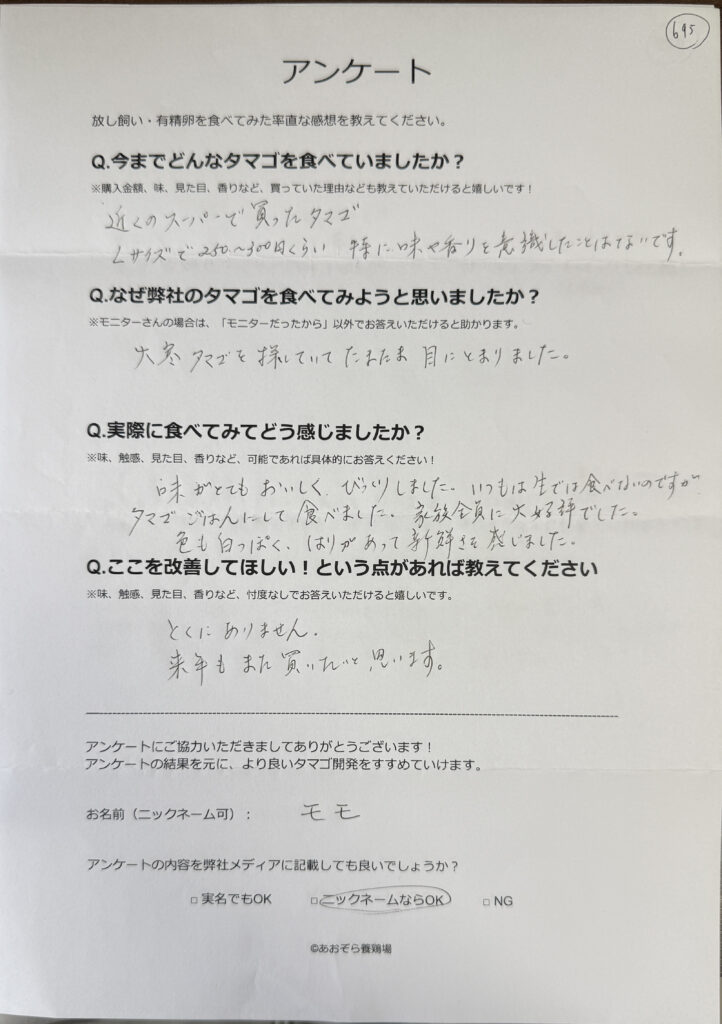 695
アンケート
放し飼い・有精卵を食べてみた率直な感想を教えてください。
Q.今までどんなタマゴを食べていましたか？
※購入金額、味、見た目、香りなど、買っていた理由なども教えていただけると嬉しいです！
近くのスーパーで買ったタマゴ
Lサイズで250〜300円くらい 特に味や香りを意識したことはないです。
Q.なぜ弊社のタマゴを食べてみようと思いましたか？
※モニターさんの場合は、「モニターだったから」以外でお答えいただけると助かります。
大寒タマゴを探していてたまたま目にとまりました。
Q.実際に食べてみてどう感じましたか？
※味、触感、見た目、香りなど、可能であれば具体的にお答えください！
味がとてもおいしく、びっくりしました。いつもは生では食べないのですが
タマゴごはんにして食べました。家族全員に大好評でした。
色も白っぽく、はりがあって新鮮さを感じました。
Q.ここを改善してほしい！という点があれば教えてください
※味、触感、見た目、香りなど、忖度なしでお答えいただけると嬉しいです。
とくにありません。
来年もまた買いたいと思います。
アンケートにご協力いただきましてありがとうございます！
アンケートの結果を元に、より良いタマゴ開発をすすめていけます。
お名前（ニックネーム可）： モモ
アンケートの内容を弊社メディアに記載しても良いでしょうか？
□ 実名でもOK □ ニックネームならOK □ NG
©あおぞら養鶏場